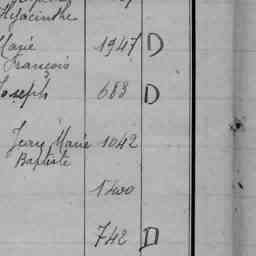 Hyacinthe
Marie 1947 D
François
Joseph 683 D
Jean Marie 1042
Baptiste
1200
742 D